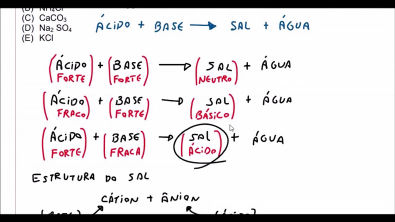 (B) NH₄Cl
(C) CaCO₃
(D) Na₂ SO₄
(E) KCl
ÁCIDO + BASE → SAL + ÁGUA
(ÁCIDO FORTE) + (BASE FORTE) → (SAL NEUTRO) + ÁGUA
(ÁCIDO FRACO) + (BASE FORTE) → (SAL BÁSICO) + ÁGUA
(ÁCIDO FORTE) + (BASE FRACA) → (SAL ÁCIDO) + ÁGUA
ESTRUTURA DO SAL
CÁTION + ÂNION